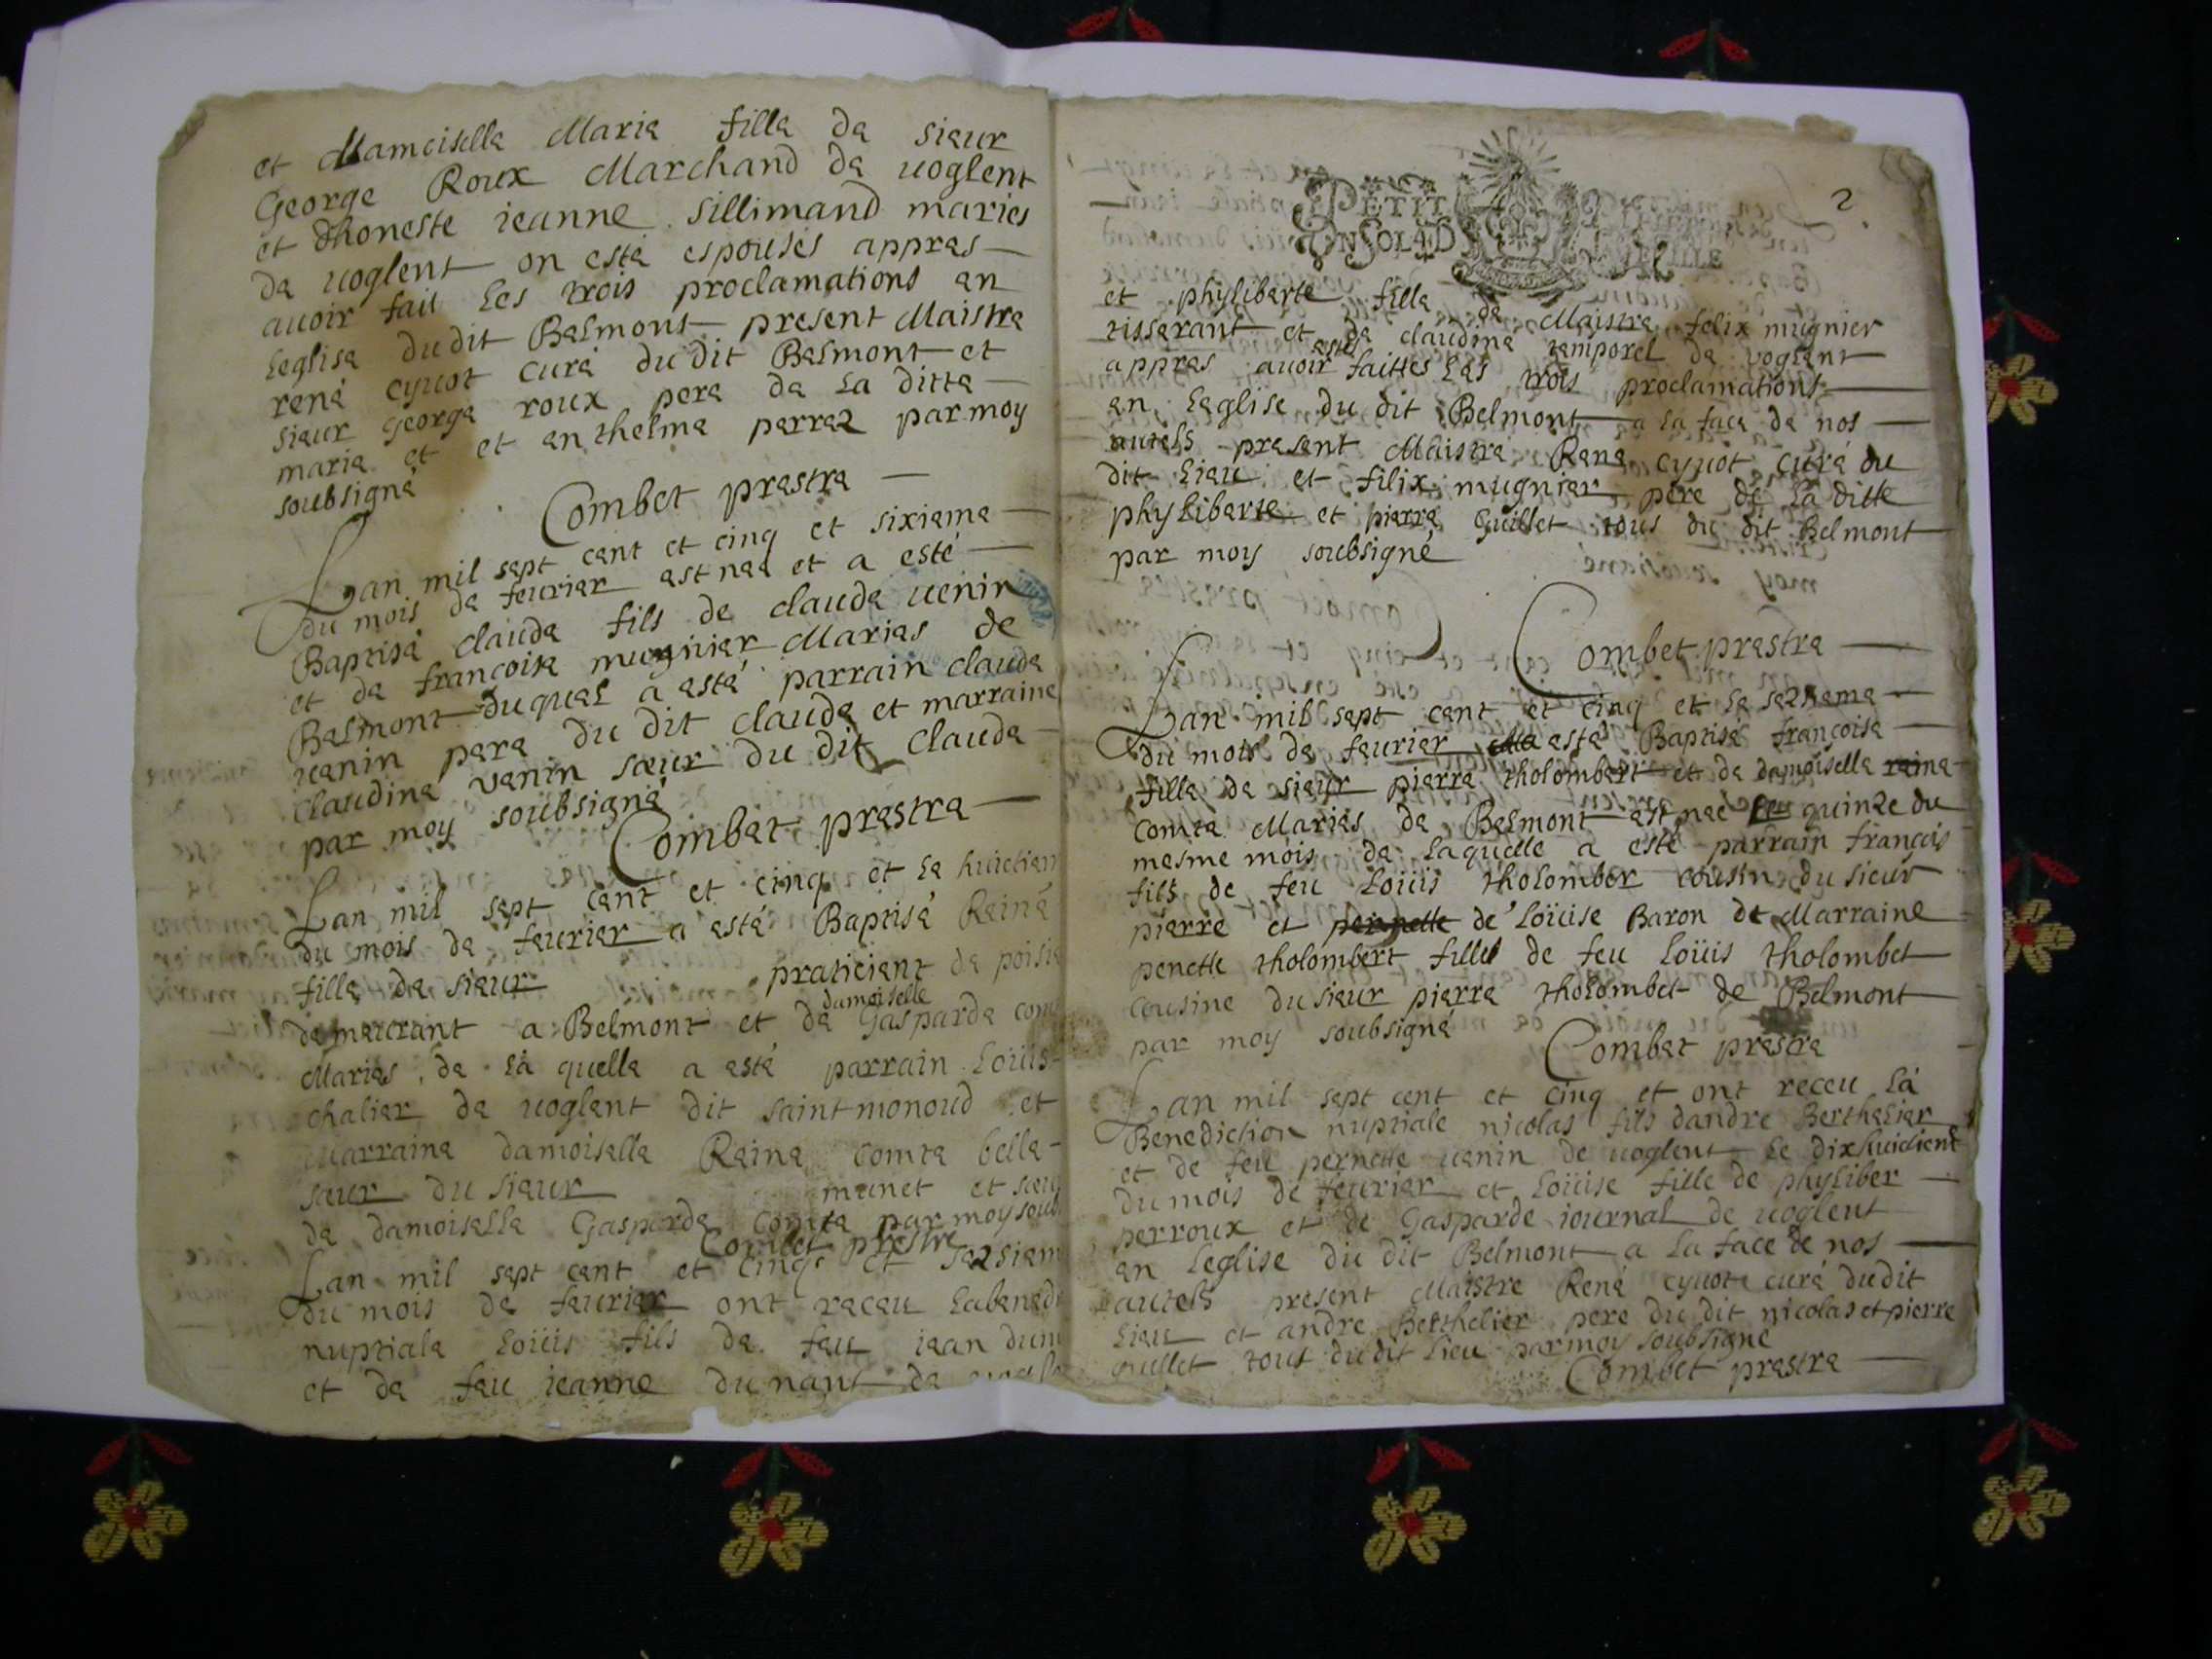 et Mamoisella Maria filla da siaur
George Roux Marchand da uoglent
et dhoneste ieanne Sillimand maries
da uoglent on esta espousés appras
auoir fait Les trois proclamations an
Leglisa du dit Balmont present Maistra
rená cyuot curá du dit Balmont et
siaur Georga roux pera da La ditta
maria et et anthelma parraz par moy
soubsigná
Combet prastra
Lan mil sapt cant et cinq et sixiama
du mois da feuriar ast naá et a esté
Baptisá clauda fils de clauda uenin
et da francoisa mugniar Marias de
Balmont duqual a astá parrain clauda
uanin para du dit clauda et marraine
claudina vanin sœur du dit clauda
par moy soubsigná
Combat prastra
Lan mil sapt cant et cinq et La huictiam
du mois da feuriar a astá Baptisá Raina
filla da siaur praticiant da
damoiselle
demaurant a Belmont et da Gasparda com
Marias da La quella a astá parrain Loüis
chaliar da uoglant dit saint monoud et
Marraina damoisalla Raina comta bella
sœur du siaur munet et sœu
da damoisalla Gasparda Comta par moy soub
Combet prestre
Lan mil sapt cant et cinq et sazsiam
du mois da fauriar ont racau Labanadi
nuptiala Loüis fils da fau iaan dum
et da fau ieanne du nant da
2
PETIT
UN SOL 4 D
et phylibarte filla da Maistra felix mugnier
tissarant et da claudina tamporel da voglant
astés
appras auoir faittes Las trois proclamations
an Laglise du dit Belmont a La faca da nos
autels prasant Maistra Rana cyuot curá du
dit Liau et filix mugniar pere de La ditte
phylibarta et piarra Guillet tous du dit Belmont
par moy soubsigné
Combet prastra
Lan mil sapt cant et cinq et La sazhama
du mois da fauriar astá Baptisá françoisa
filla da siaur piarra tholombart et da damoisella raina
comta Mariás da Balmont ast nae quinze du
mesme mois da Laquelle a esté parrain françois
fils de feu Loüis tholomber cousin du sieur
pierre et pernette de Loüise Baron de Marraine
penette tholombert fille de feu Loüis tholombet
cousine du siaur piarra tholombet de Belmont
par moy soubsigná
Combat prastra
Lan mil sapt cent et cinq et ont receu Lá
Benediction nuptiale nicolas fils dandre Berthaliar
et de feu pernette uanin de uoglent Le dixhuictiem
du mois de feuriar et Loüise fille de phyliber
perroux et de Gasparde iournal de uoglent
an Leglise du dit Belmont a La face de nos
autels present Maistre Rená cyuot curá dudit
Liau et andre Berthelier pere du dit nicolas et pierre
guillet tous du dit Lieu par moy soubsigne
Combet prastra